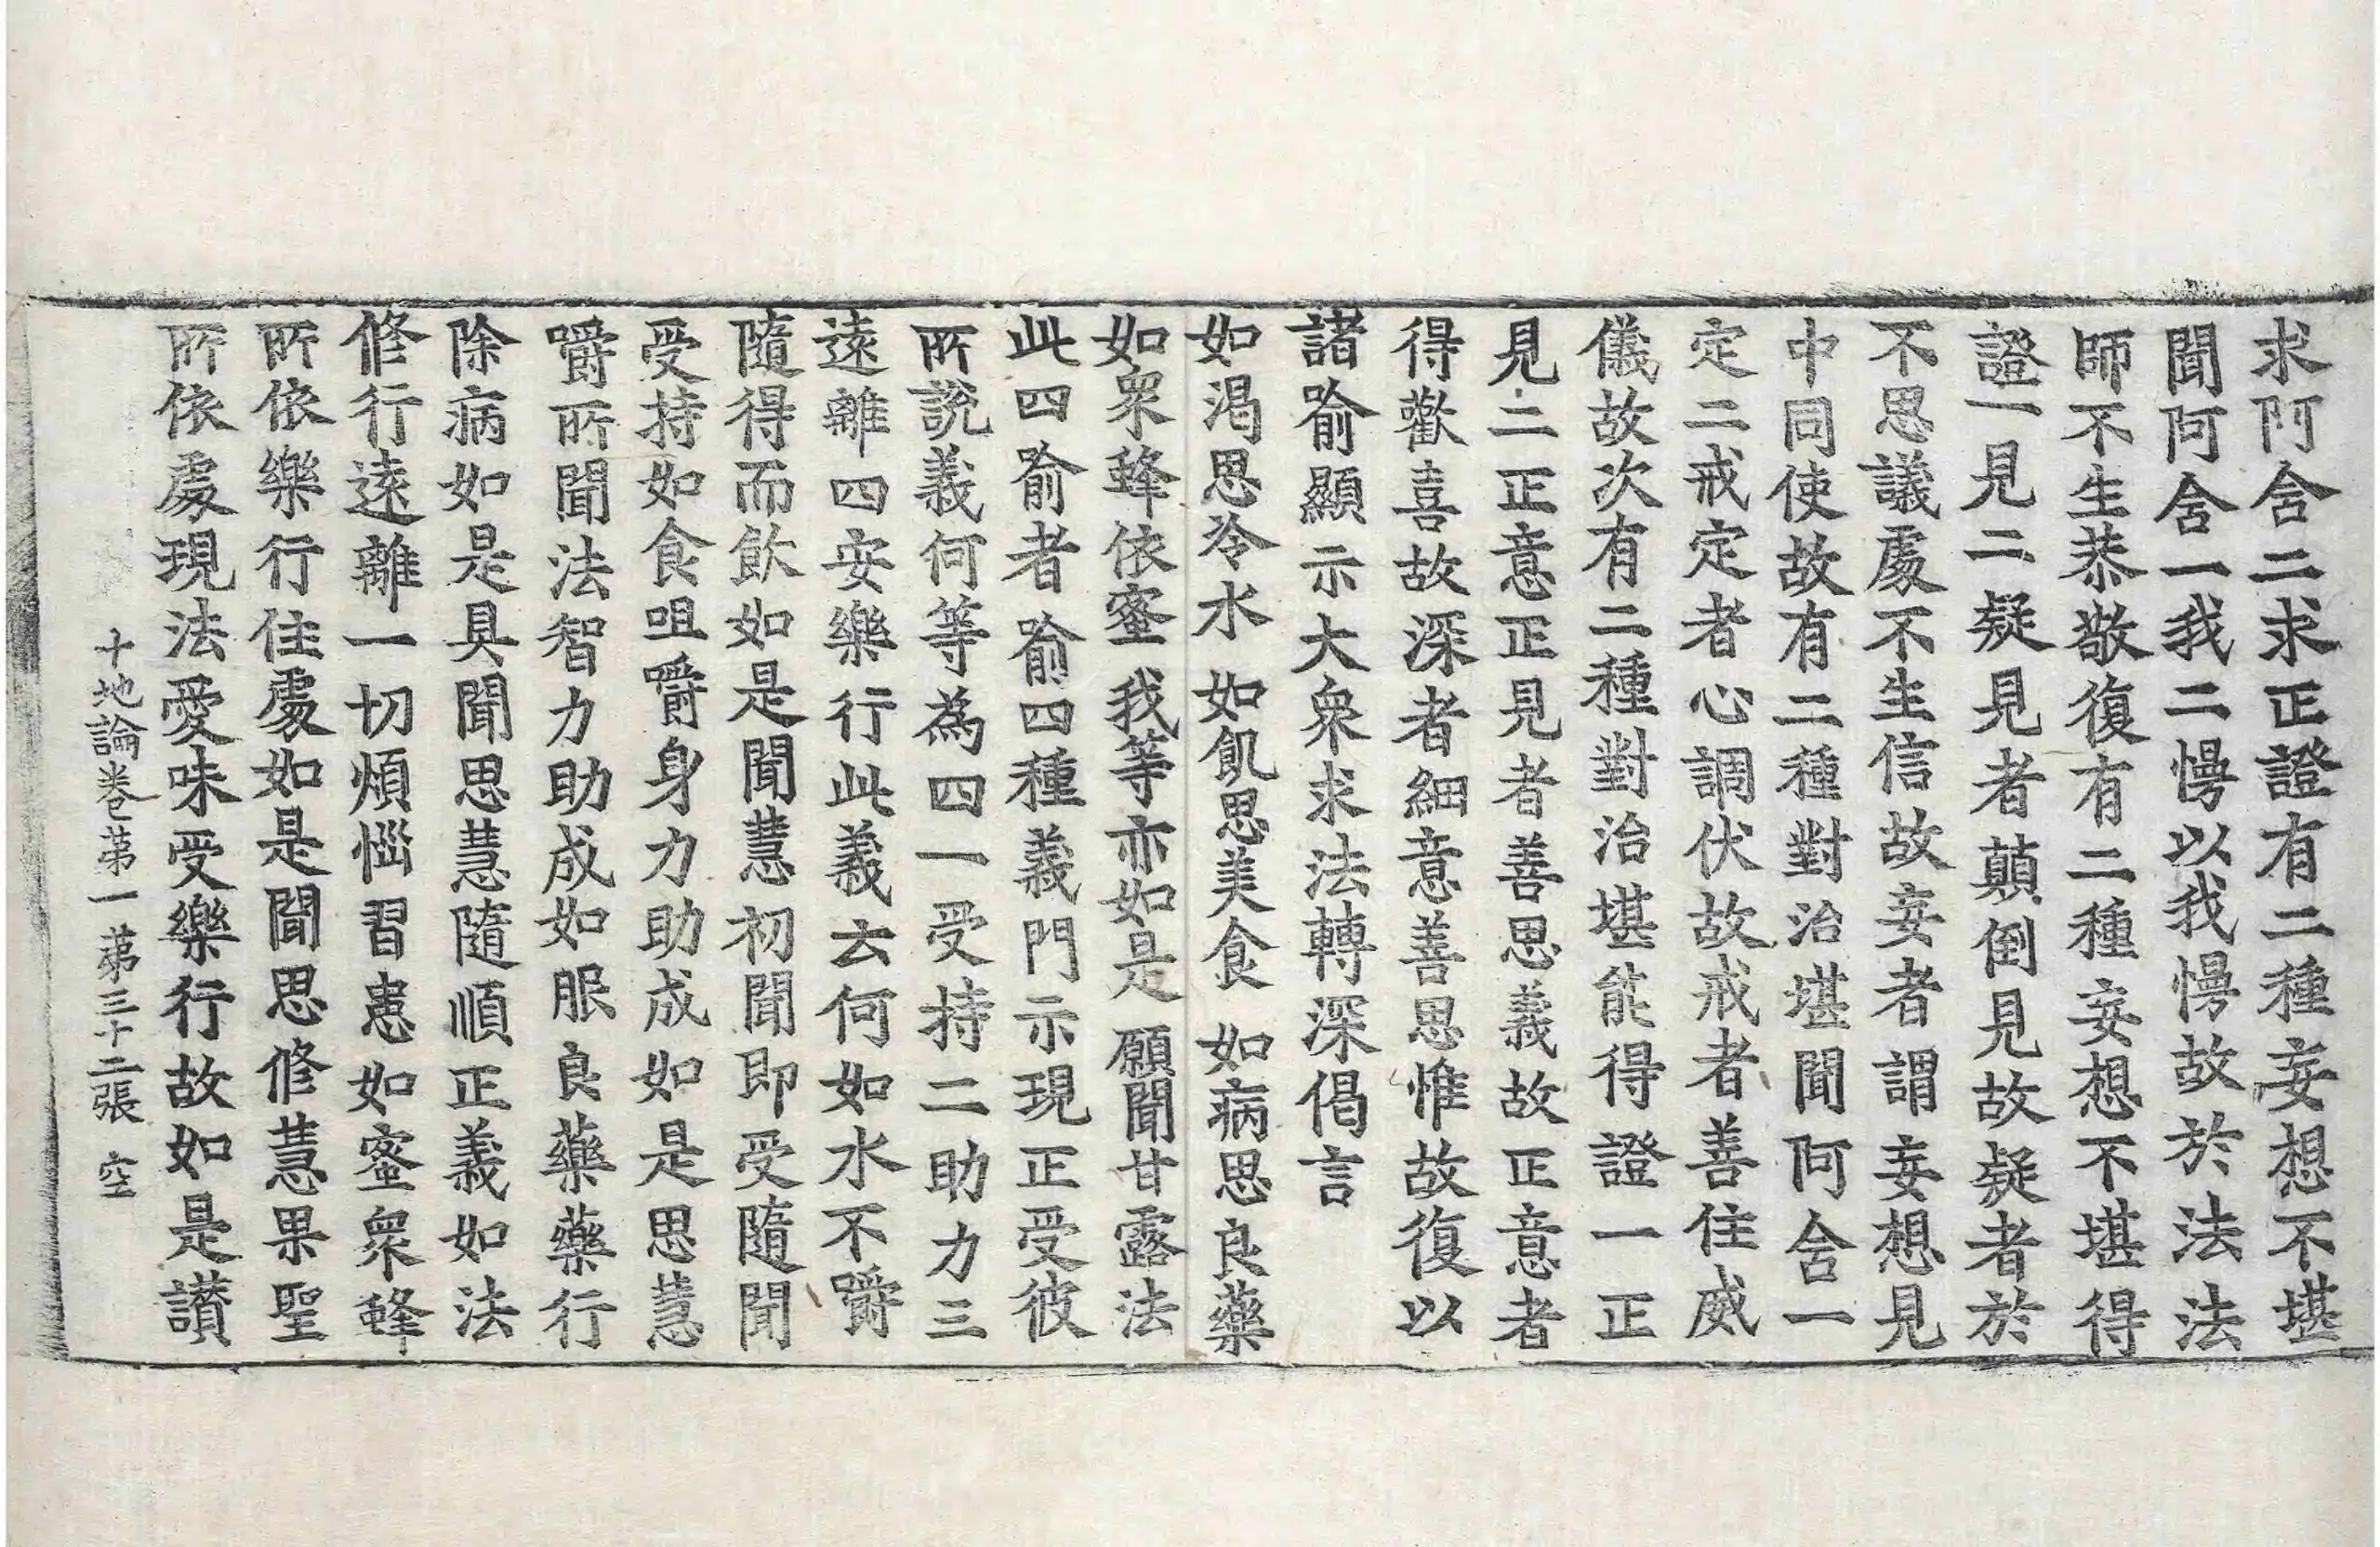 求阿含二求正證有二種妄想不堪
聞阿含一我二慢以我慢故於法法
師不生恭敬復有二種妄想不堪得
證一見二疑見者顛倒見故疑者於
不思議處不生信故妄者謂妄想見
中同使故有二種對治堪聞阿含一
定二戒定者心調伏故戒者善住威
儀故次有二種對治堪能得證一正
見二正意正見者善思義故正意者
得歡喜故深者細意善思惟故復以
諸喻顯示大衆求法轉深偈言
如渴思冷水 如飢思美食 如病思良藥
如衆蜂依蜜 我等亦如是 願聞甘露法
此四喻者喻四種義門示現正受彼
所說義何等為四一受持二助力三
遠離四安樂行此義云何如水不嚼
隨得而飲如是聞慧初聞即受隨聞
受持如食咀嚼身力助成如是思慧
嚼所聞法智力助成如服良藥藥行
除病如是具聞思慧隨順正義如法
修行遠離一切煩惱習患如蜜衆蜂
所依樂行住處如是聞思修慧果聖
所依處現法愛味受樂行故如是讃
十地論卷苐一 苐三十二張 空